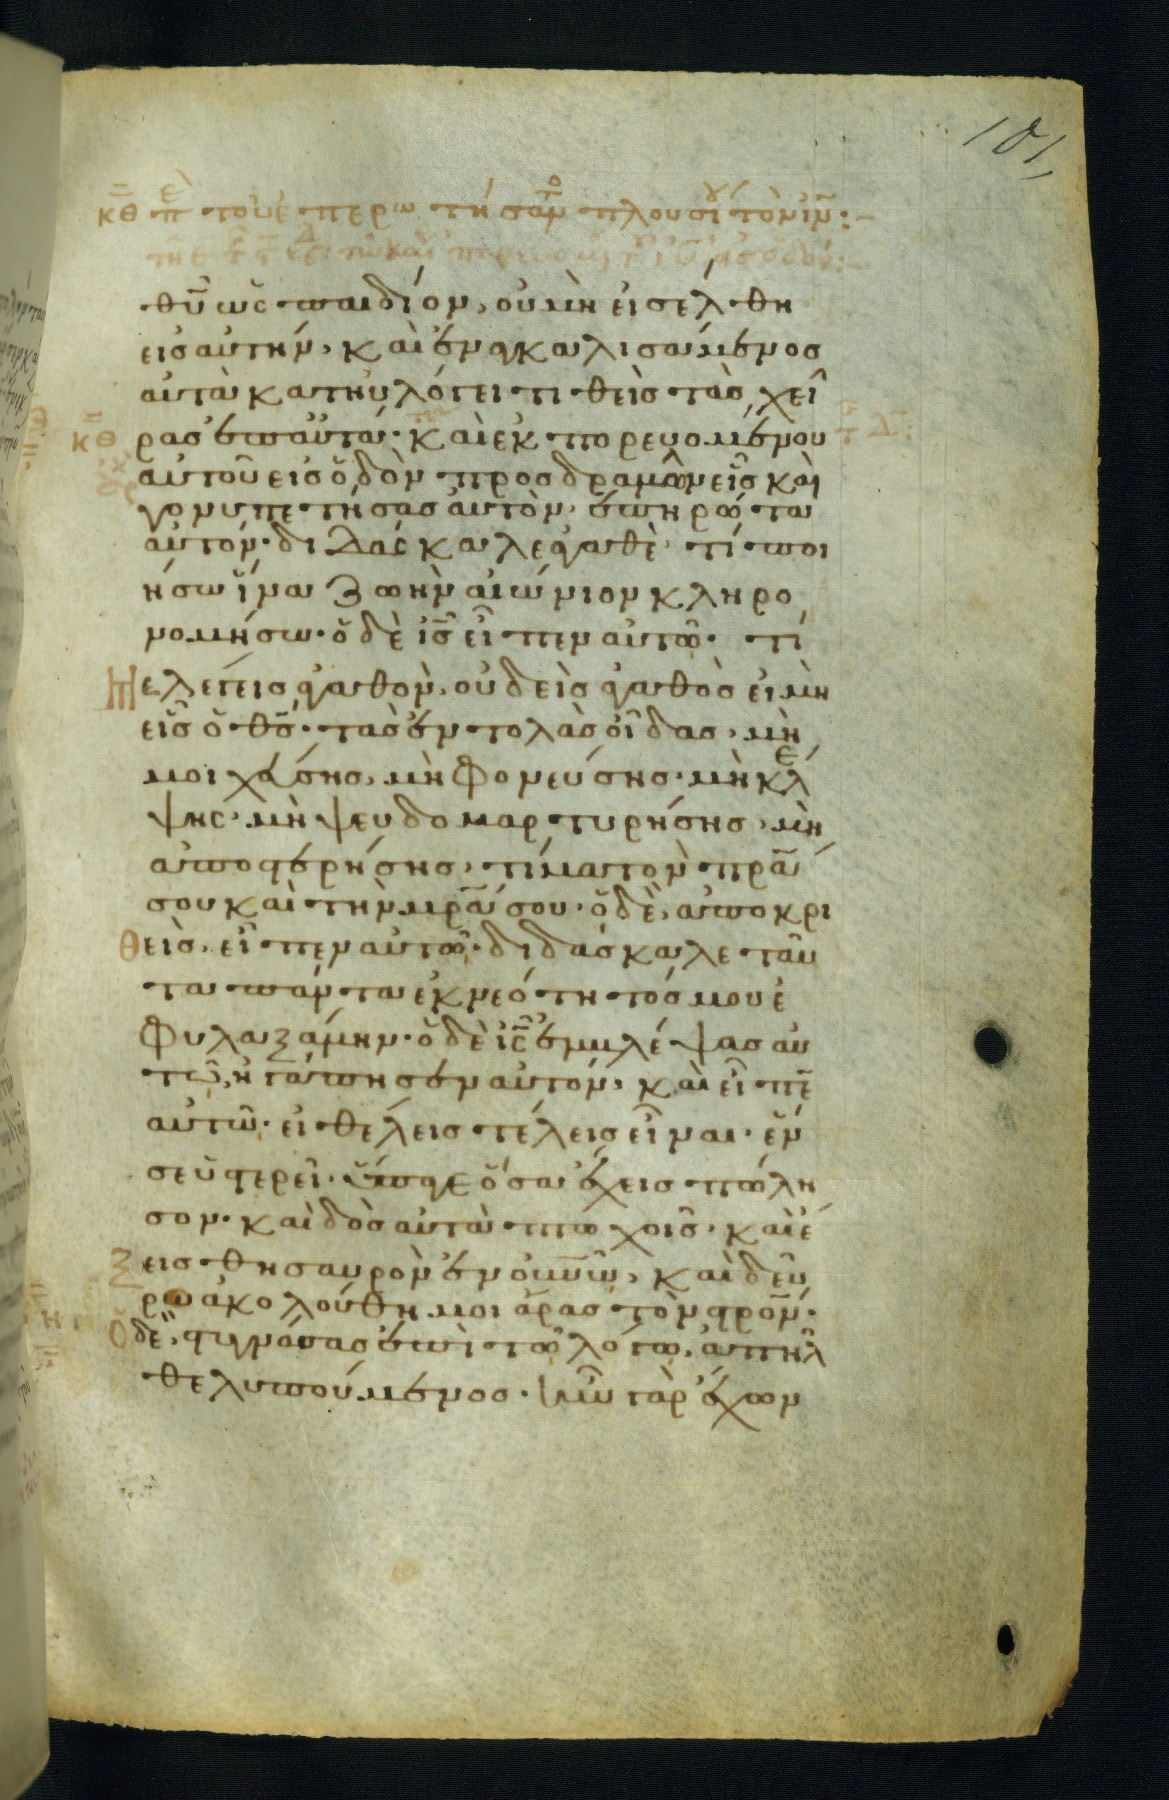 101
κθ πε τοῦ ἐπερωτήσαντο πλουσίου τὸν ἰν:–
θῦ ὡς παιδίον, οὐ μὴ εἰσέλθη
εἰς αὐτήν, καὶ ἐναγκαλισάμενος
αὐτὰ κατηυλόγει τιθεὶς τὰς χεῖ
κθ ρας ἐπ αὐτά· καὶ ἐκπορευομένου
αὐτοῦ εἰς ὁδὸν προσδραμὼν εἷς καὶ
γονυπετήσας αὐτὸν, ἐπηρώτα
αὐτόν· διδάσκαλε ἀγαθὲ τί ποι
ήσω ἵνα ζωὴν αἰώνιον κληρο
νομήσω· ὁ δὲ ἰς εἶπεν αὐτῶ· τί
με λέγεις ἀγαθὸν, οὐδεὶς ἀγαθὸς εἰ μὴ
εἷς ὁ θς· τὰς ἐντολὰς οἶδας, μὴ
μοιχεύσης, μὴ φονεύσης· μὴ κλέ
ψης· μὴ ψευδομαρτυρήσης, μὴ
ἀποστερήσης, τίμα τὸν πρα
σου καὶ τὴν μρα σου· ὁ δὲ, ἀποκρι
θεὶς, εἶπεν αὐτῶ· διδάσκαλε ταῦ
τα πάντα ἐκ νεότητός μου ἐ
φυλαξάμην· ὁ δὲ ἰς ἐμβλέψας αὐ
τῶ, ἠγάπησεν αὐτόν, καὶ εἶπε
αὐτῶ· εἰ θέλεις τέλειος εἶναι· ἕν
σε ὑστερεῖ· ὕπαγε ὅσα ἔχεις πώλη
σον· καὶ δὸς αὐτὰ πτωχοῖς· καὶ ἕ
ξεις θησαυρὸν ἐν οὐνῶ, καὶ δεῦ
ρο ἀκολούθη μοι ἄρας τὸν στρον·
ὁ δὲ, στυγνάσας ἐπὶ τῶ λόγω, ἀπηλ
θε λυπούμενος· ἦν γὰρ ἔχων